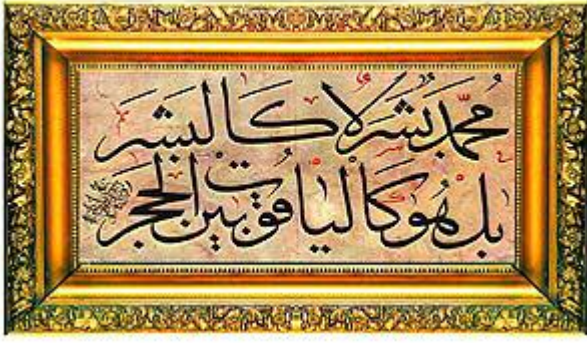 محمّد بشر لا كالبشر
بل هو كالياقوت بين الحجر